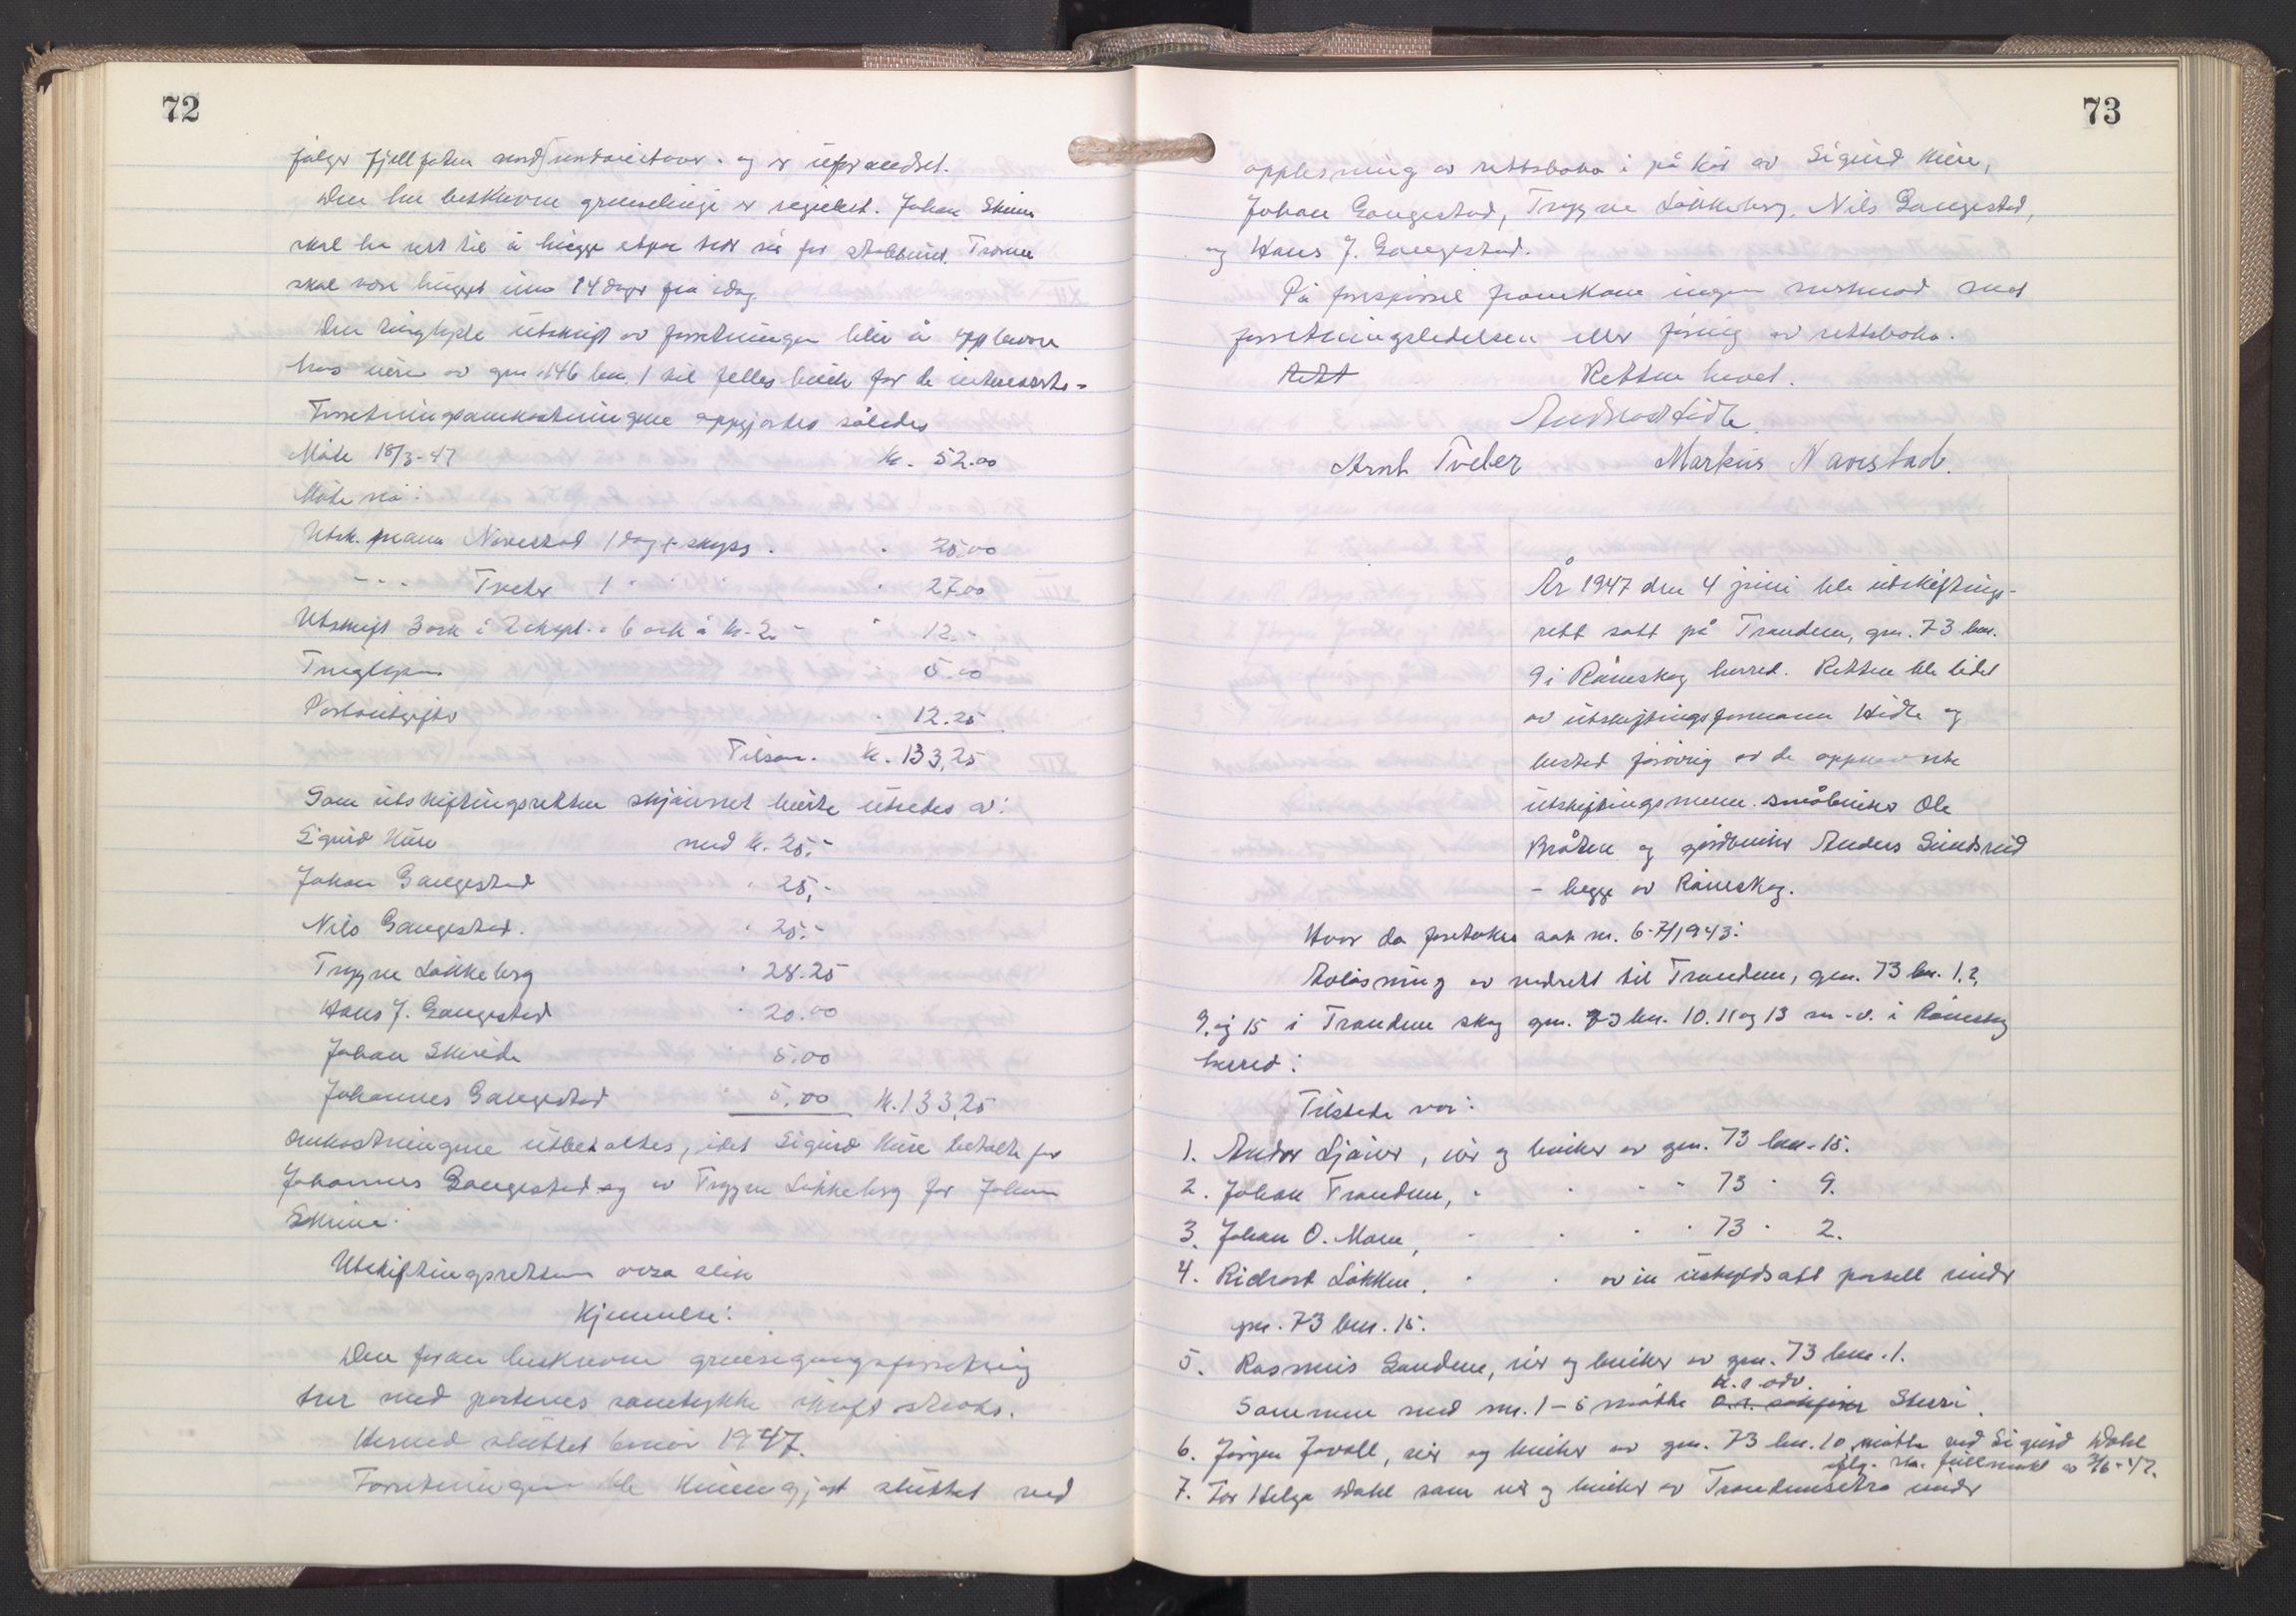 72
følger fjellfoten mot og er uforandret.
Den her beskrevne grenselinje er regulert. Johan
skal ha rett til å hugge
skal være hugget innen 14 dager fra idag.
Den tinglyste utskrift av forretningen blir å oppbevare
hos eieren av gnr. 146 bnr. 1 til felles bruk for de interesserte.
Forretningsomkostningene oppgjortes således
Møte 18/3-47 kr. 52.00
Møte nå:
Utsk. mann Navestad 1 dag + skyss. 25.00
- - - Tveter 1 " " " 27.00
Utskrift 3 ark i 2 ekspl. = 6 ark à kr. 2.- " 12.-
Tinglysn 5.00
Portoutgifter 12.25
Tilsam. kr. 133,25
Som utskiftingsretten skjønnet burte utredes av:
Sigurd Hure med kr. 25.-
Johan Gangestad " 25,-
Nils Gangestad. " 25.-
Trygve Løkkeberg " 28.25
Hans J. Gangestad " 20.00
Johan " 5.00
Johannes Gangestad " 5.00 kr. 133,25
Omkostningene utbetaltes, idet Sigurd Hure betalte for
Johannes Gangestad og av Trygve Løkkeberg for Johan
Utskiftingsretten avsa slik
Kjennelse:
Den foran beskrevne grensegangsforretning
trer med partenes samtykke i kraft straks.
Hermed sluttet 6 mai 1947.
Forretningen ble kunngjort sluttet ved
73
opplesning av rettsboka i påhør av Sigurd Hure,
Johan Gangestad, Trygve Løkkeberg, Nils Gangestad,
og Hans J. Gangestad.
På forespørsel framkom ingen merknad mot
forretningsledelsen eller føring av rettsboka.
Rett Retten hevet.
Hidle
Arnt Tveter Markus Navestad.
År 1947 den 4 juni ble utskiftings-
rett satt på Trandem, gnr. 73 bnr.
9 i Rømskog herred. Retten ble ledet
av utskiftingsformann Hidle og
bested forøvrig av de oppnevnte
utskiftingsmenn. småbruker Ole
Bråten og gårdbruker Anders Sundsrud
- begge av Rømskog.
Hvor da foretokes sak nr. 6-7/1943:
Avløsning av vedrett til Trandem, gnr. 73 bnr. 1. 2,
9. og 15 i Trandem skog gnr. 73 bnr. 10. 11 og 13 m.v. i Rømskog
herred:
Tilstede var:
1. Andor Ljøner, eier og bruker av gnr. 73 bnr. 15.
2. Johan Trandem, " " " " 73 " 9.
3. Johan O. Moen, " " " " 73 " 2.
4. Løkken, " " av en uskyldsatt parsell under
gnr. 73 bnr. 15.
5. Rasmus Sandem, eier og bruker av gnr. 73 bnr. 1.
h.r.adv.
Sammen med nr. 1-5 møtte o.r. sakfører
6. Jørgen Jovall, eier og bruker av gnr. 73 bnr. 10 møtte ved Sigurd Dahl
iflg. fullmakt av 3/6-47.
7. For Helga Dahl som eier og bruker av Trandemsetra under